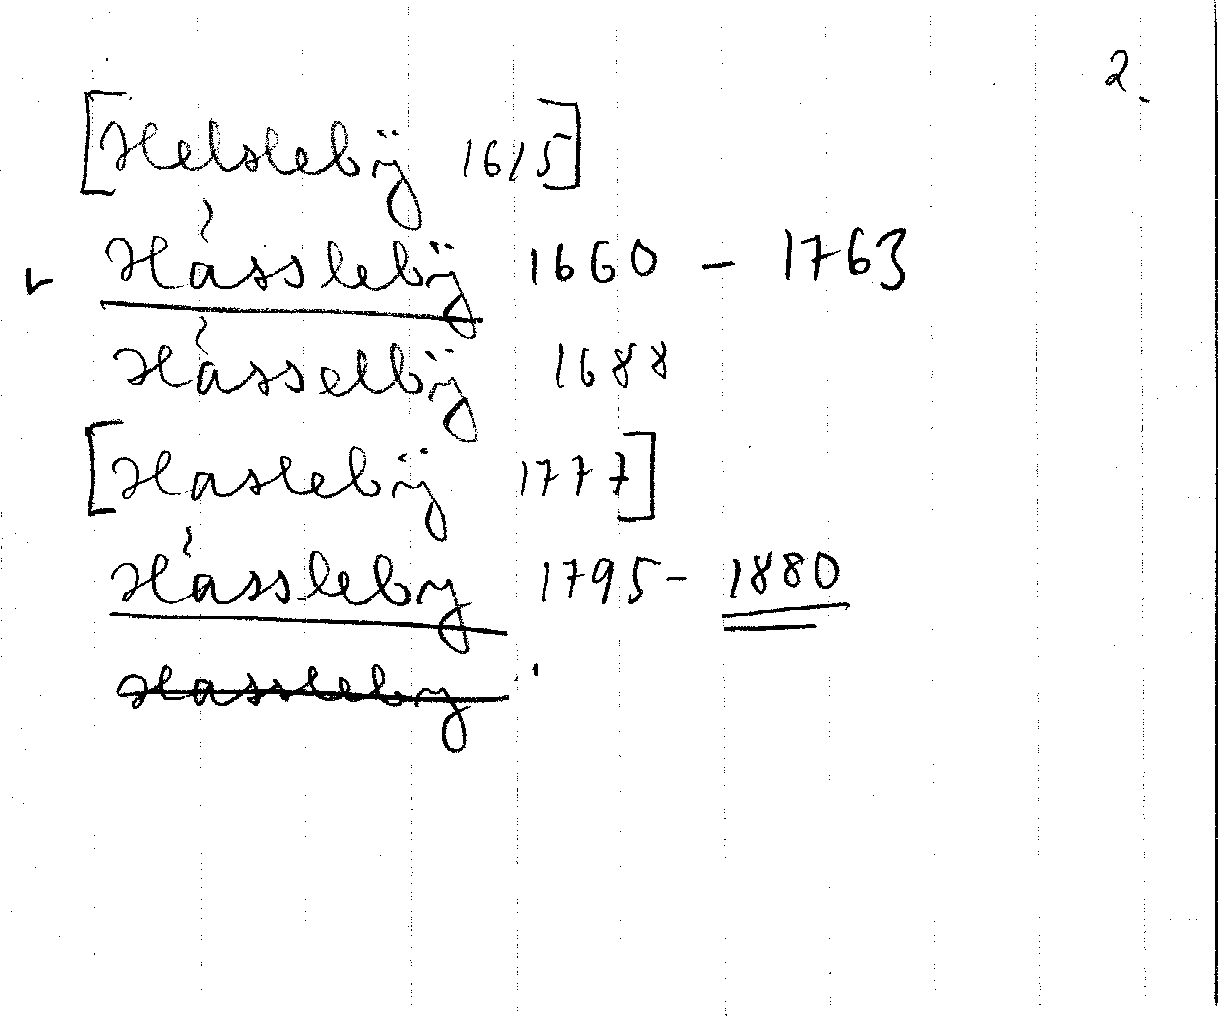 2.
[Helslebÿ 1615]
Hässlebÿ 1660 – 1763
Hässelbÿ 1688
[Haslebÿ 1777]
Hässleby 1795 – 1880
Hassleby